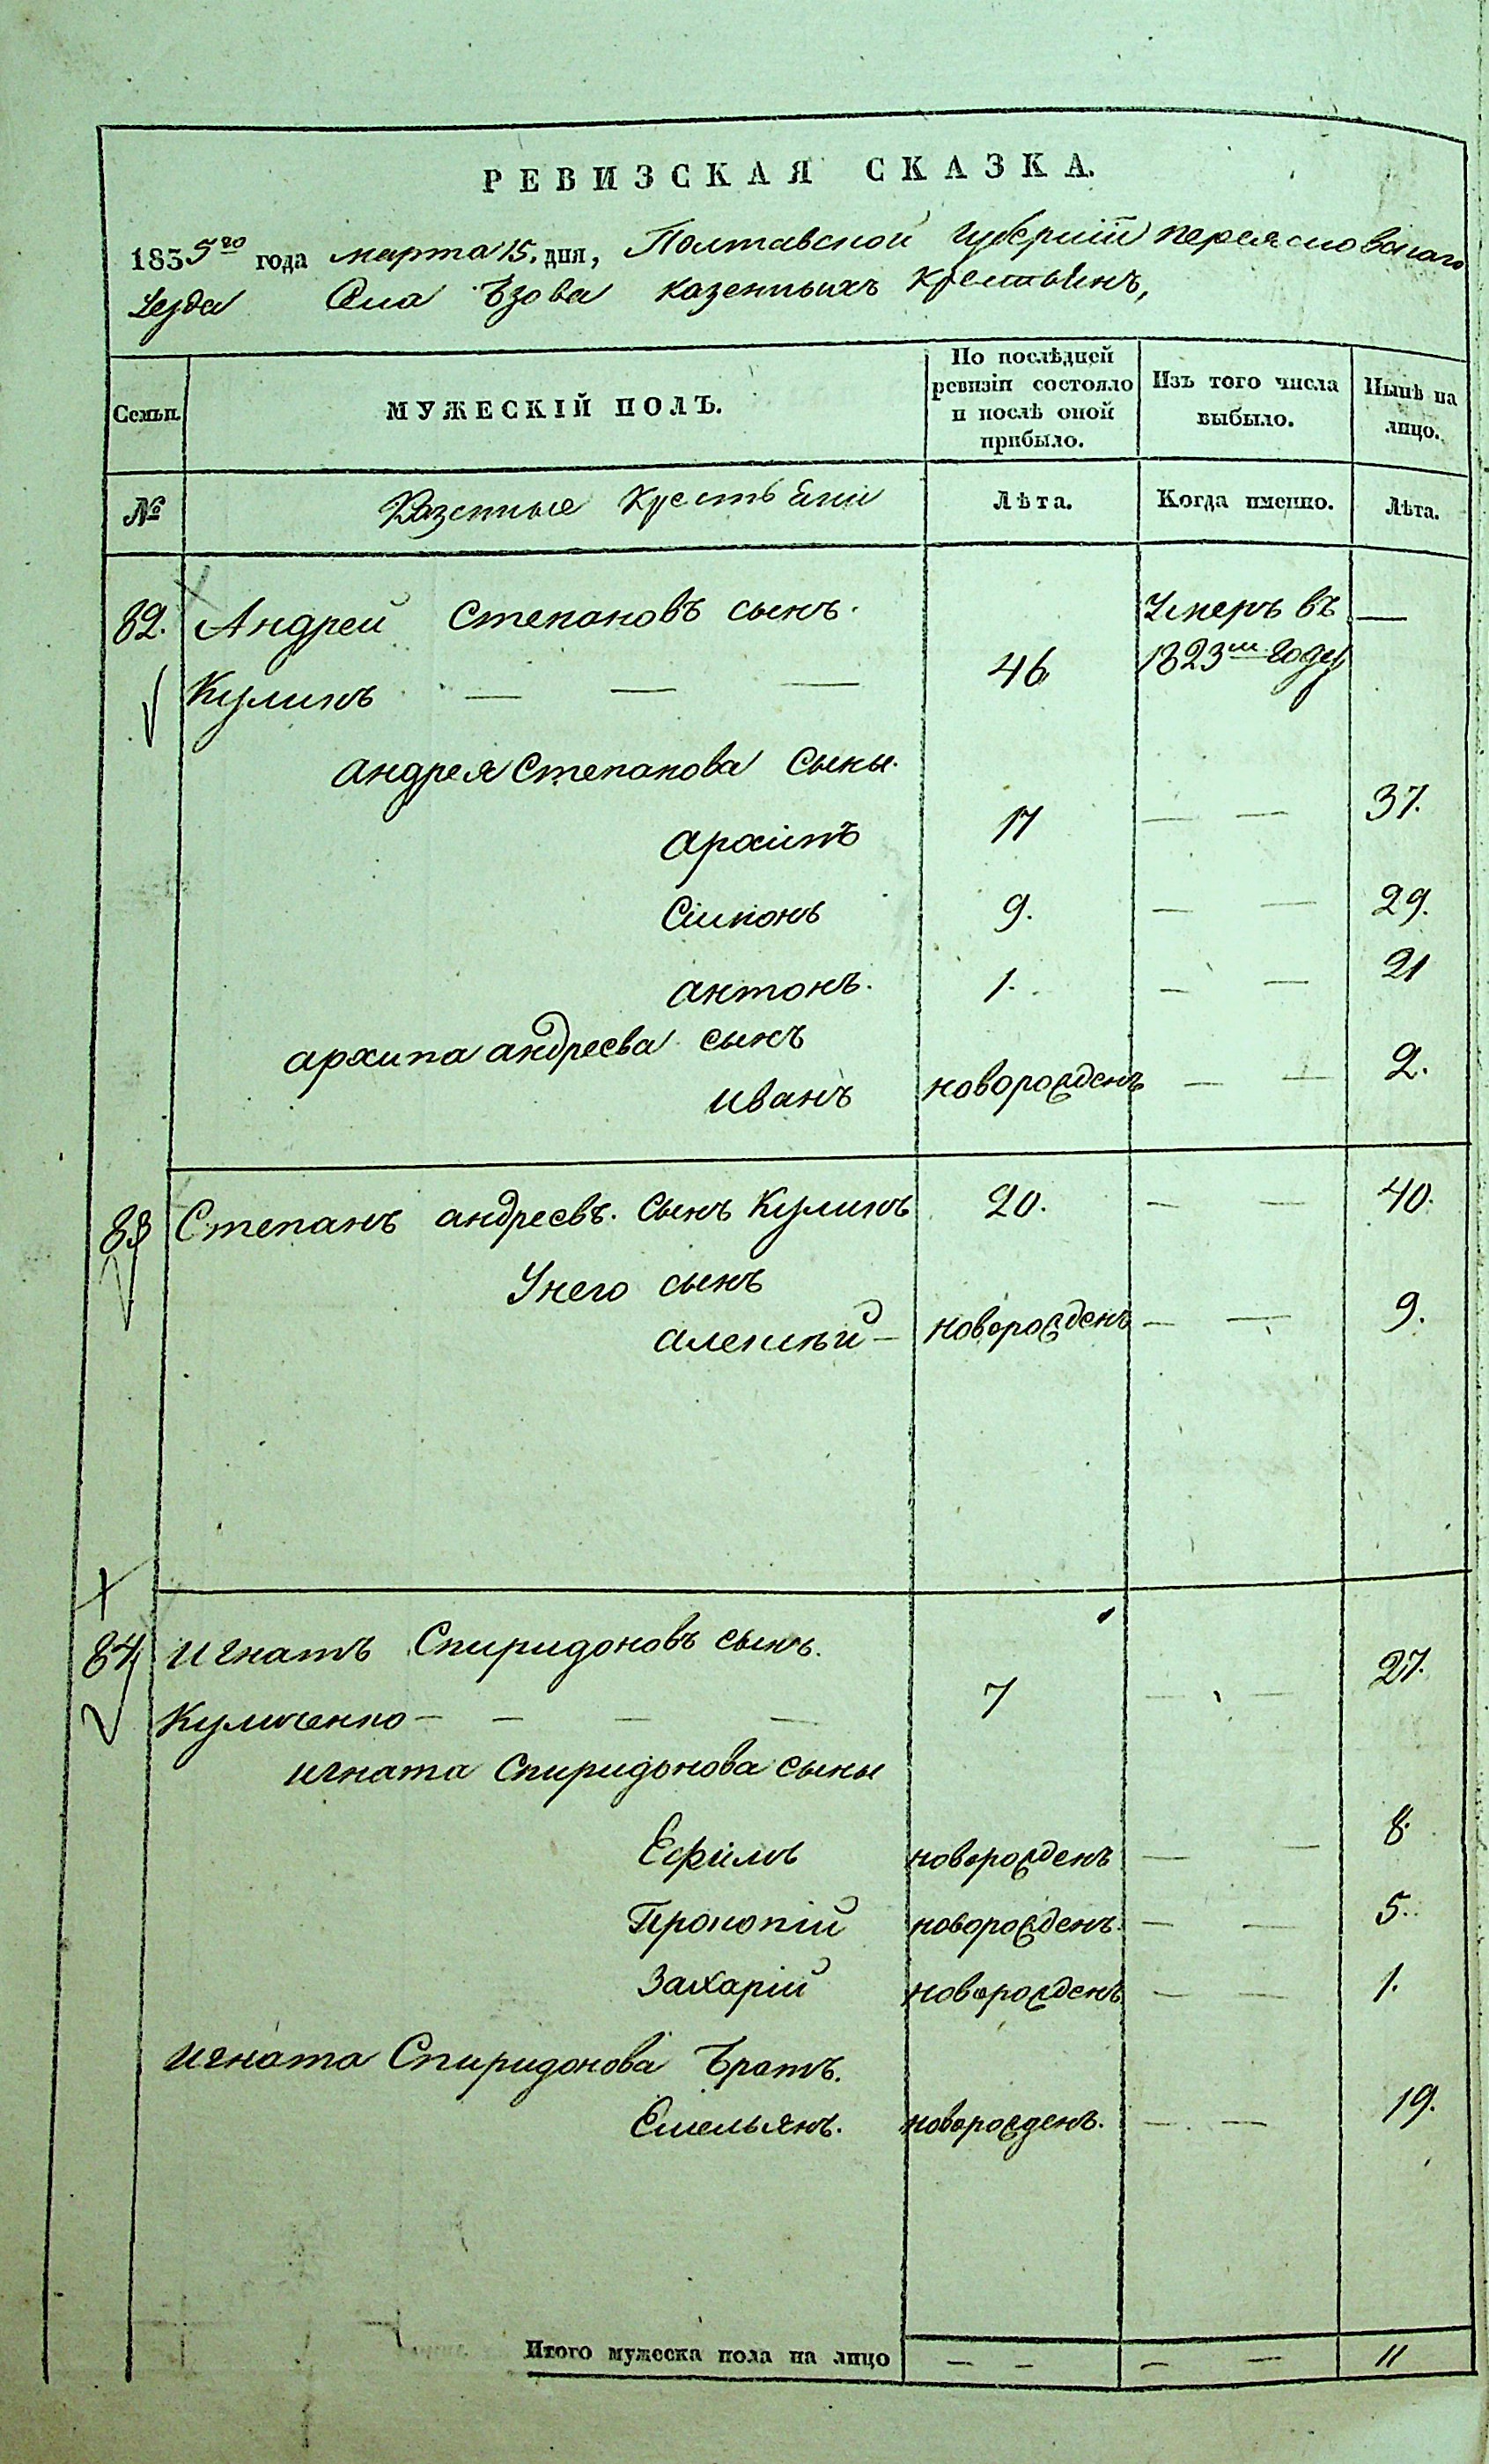 РЕВИЗСКАЯ СКАЗКА.
1835го года марта 15. дня, Полтавской Губернiи Переясловскаго
уезда Села Ѣзова казенныхъ крестьянъ,
Семьи.
МУЖЕСКІЙ ПОЛЪ.
По послѣдней ревизіи состояло и послѣ оной прибыло.
Изъ того числа выбыло.
Нынѣ на лицо.
№
Казенные крестьяни
Лѣта.
Когда именно.
Лѣта.
82. Андрей Степановъ сынъ. Умеръ въ —
Куликъ — — — 46 1823м году
андрея Степанова сыны.
архипъ 17 — — 37.
Симонъ 9. — — 29.
антонъ. 1. — — 21
архипа андреева сынъ
иванъ новорожденъ — — 2.
83 Степанъ андреевъ. сынъ Куликъ 20. — — 40.
Унего сынъ
алексѣй — новорожденъ — — 9.
84. игнатъ Спиридоновъ сынъ. 27.
Куличенко — — — — 7 — —
игната Спиридонова сыны
Ефимъ новорожденъ — — 8.
Прокопій новорожденъ. — — 5.
Захарій новорожденъ — — 1.
игната Спиридонова братъ.
Емельянъ. новорожденъ. — — 19.
Итого мужеска пола на лицо — — — — 11